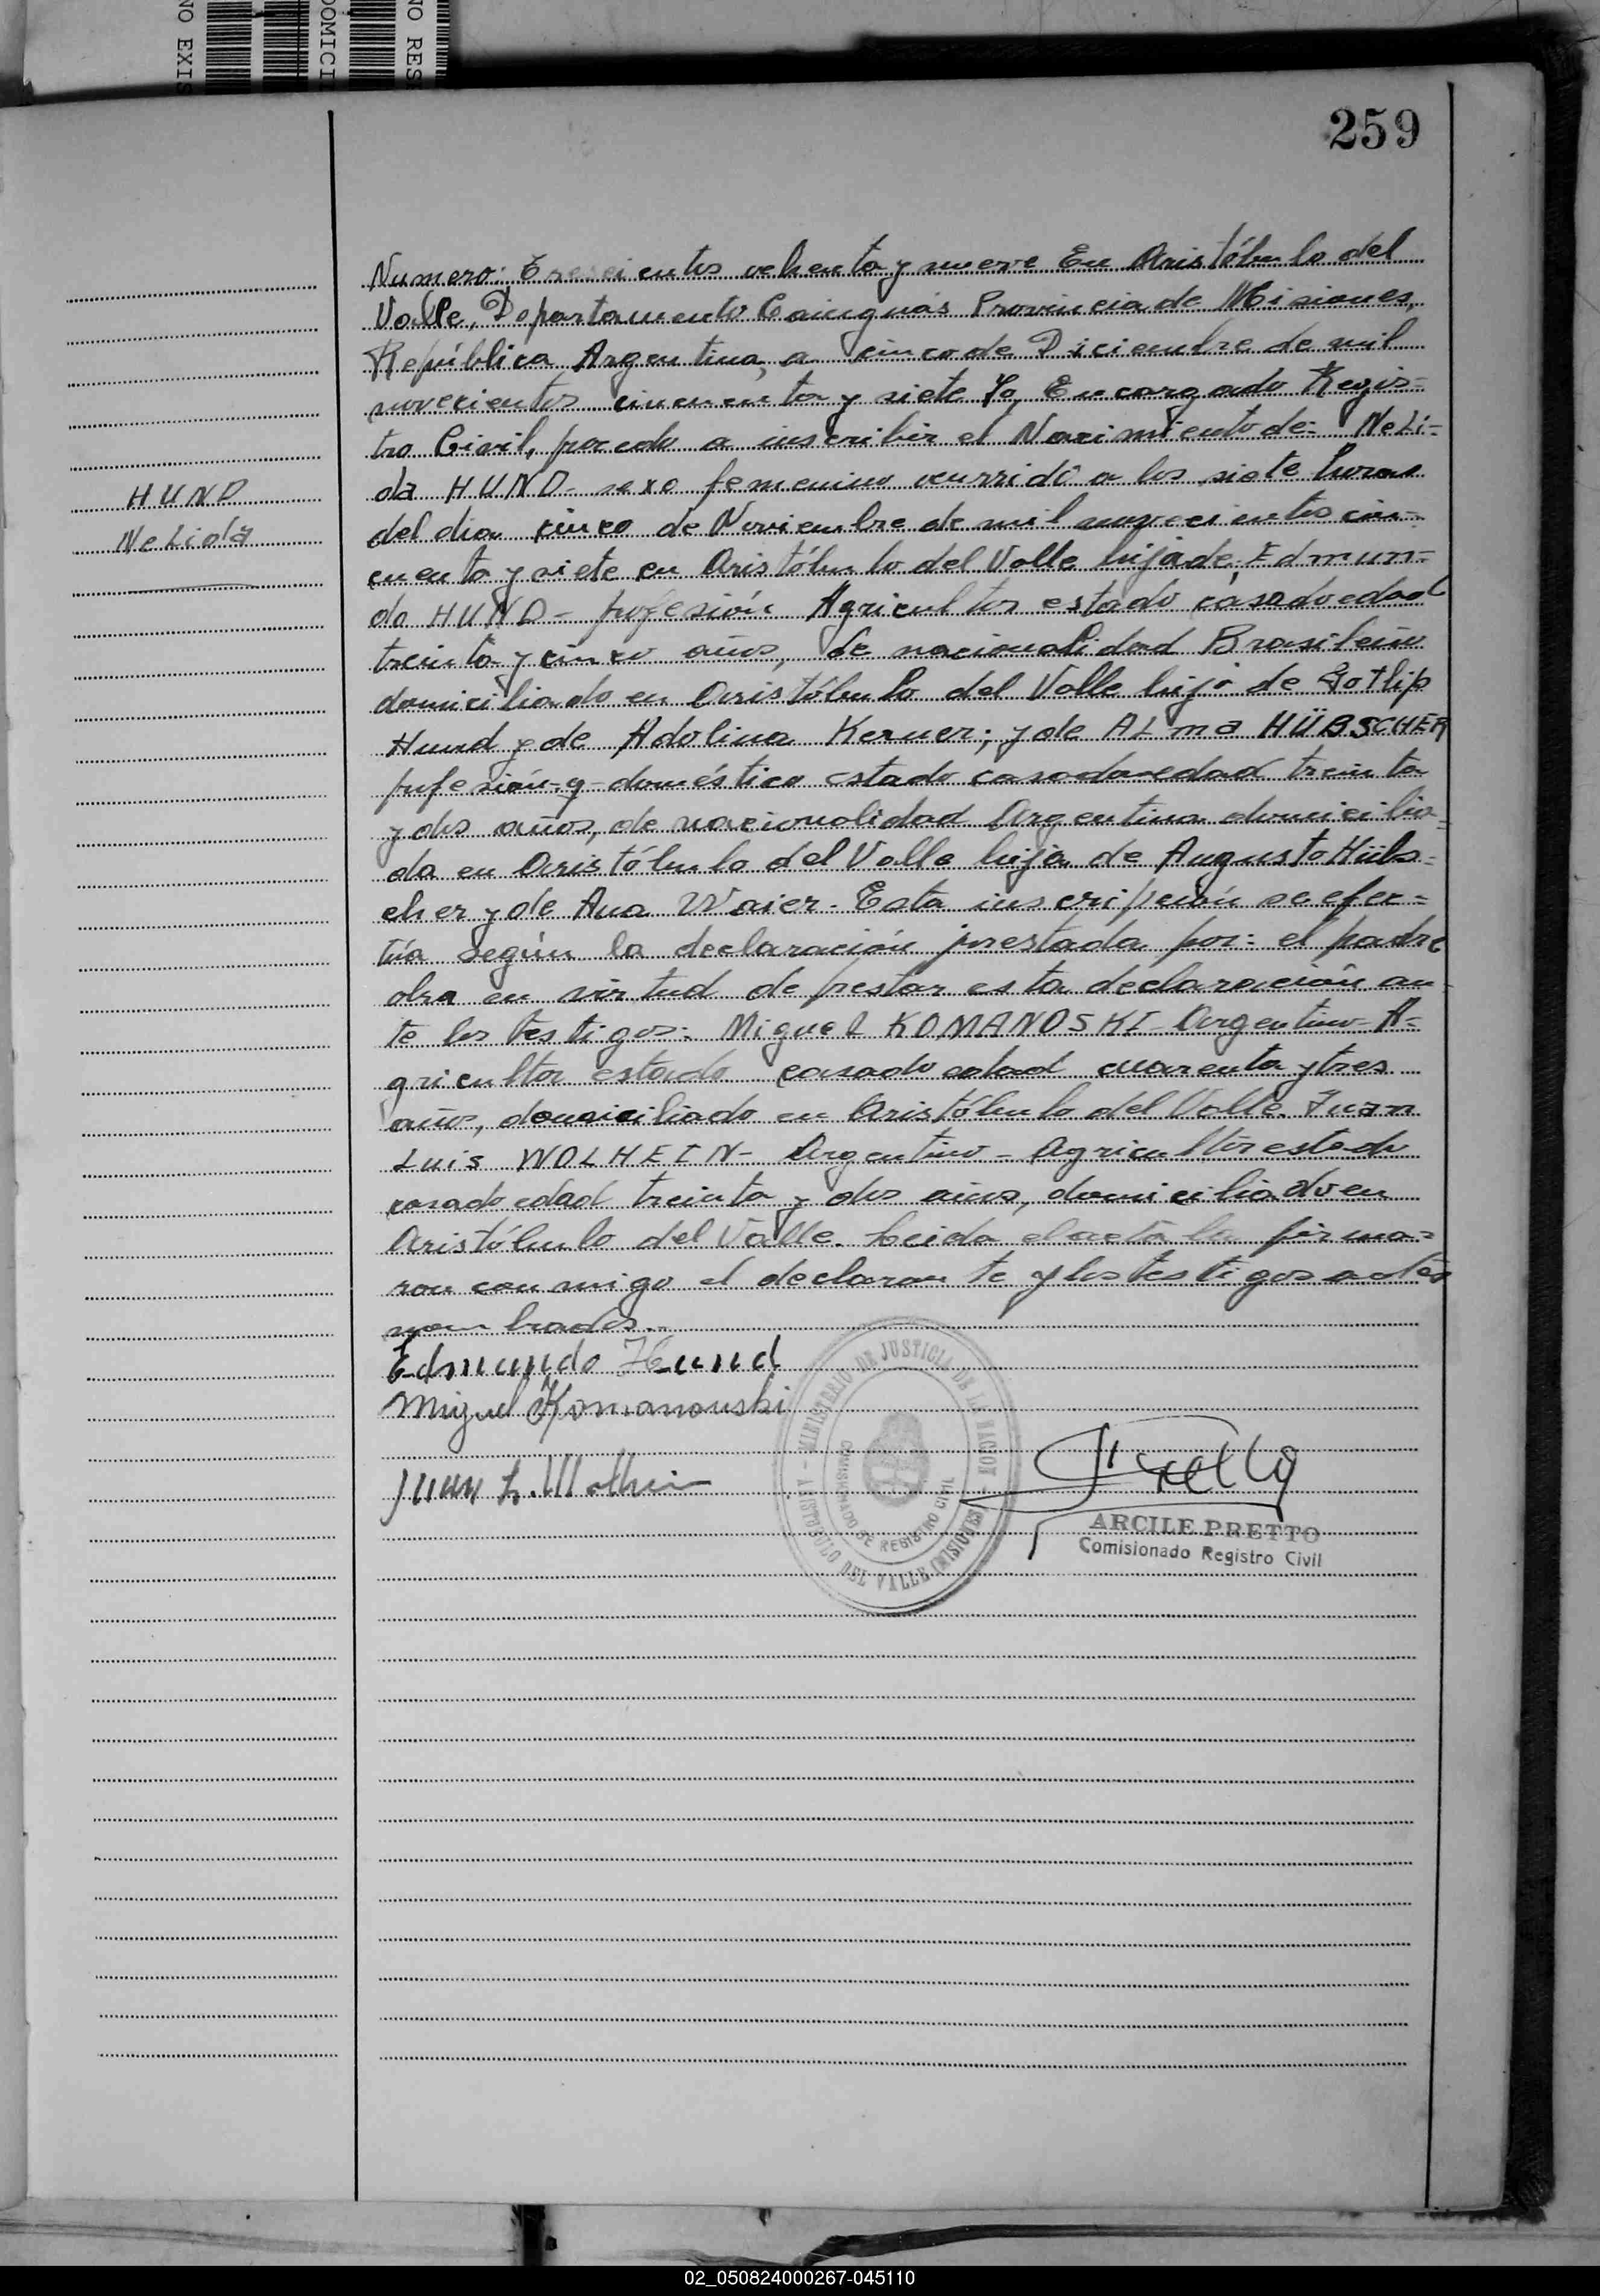 NO EXIS
DOMICI
NO RES
259
Numero: Trescientos ochenta y nueve En Aristóbulo del
Valle, Departamento Cainguás Provincia de Misiones,
República Argentina, a cinco de Diciembre de mil
novecientos cincuenta y siete Yo, Encargado Regis=
tro Civil, procedo a inscribir el Nacimiento de: NeLi=
da HUND- sexo femenino ocurrido a las siete horas
HUND
NeLida
del dia cinco de Noviembre de mil novecientos cin=
cuenta y siete en Aristóbulo del Valle hija de, Edmun=
do HUND- profesión Agricultor estado casado edad
treinta y cinco años, de nacionalidad Brasileño
domiciliado en Aristóbulo del Valle hijo de Gotlip
Hund y de Adolina Kerner; y de ALma HÜBSCHER
profesión-q-doméstico estado casada edad treinta
y dos años, de nacionalidad Argentina domicilia=
da en Aristóbulo del Valle hija de Augusto Hübs=
cher y de Ana Waier- Esta inscripción se efec=
túa según la declaración prestada por: el padre
obra en virtud de prestar esta declaración an
te los testigos: Miguel KOMANOSKI- Argentino- A=
gricultor estado casado edad cuarenta y tres
años, domiciliado en Aristóbulo del Valle. Juan
Luis WOLHEIN- Argentino- Agricultor estado
casado edad treinta y dos años, domiciliado en
Aristóbulo del Valle. Leida el acta la firma=
ron conmigo el declarante y los testigos antes
nombrados.-
Edmundo Hund
Miguel Komanouski
Juan L. Wolhein
MINISTERIO DE JUSTICIA DE LA NACION
COMISIONADO DE REGISTRO CIVIL
ARISTOBULO DEL VALLE (MISIONES)
ARCILE PRETTO
Comisionado Registro Civil
02_050824000267-045110